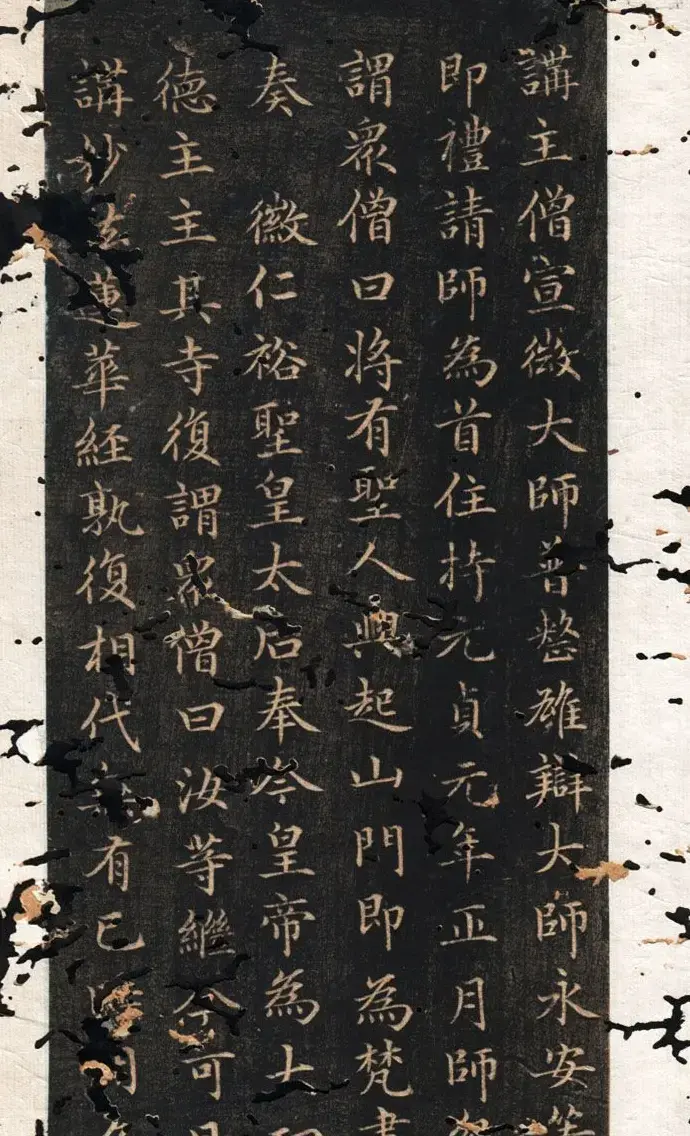 講主僧宣微大師普整雄辯大師永安等
即禮請師為首住持元貞元年正月師
謂眾僧曰將有聖人興起山門即為梵書
奏 徽仁裕聖皇太后奉今皇帝為大
德主主其寺復謂眾僧曰汝等繼今可
講妙法蓮華經孰復相代無有已時用